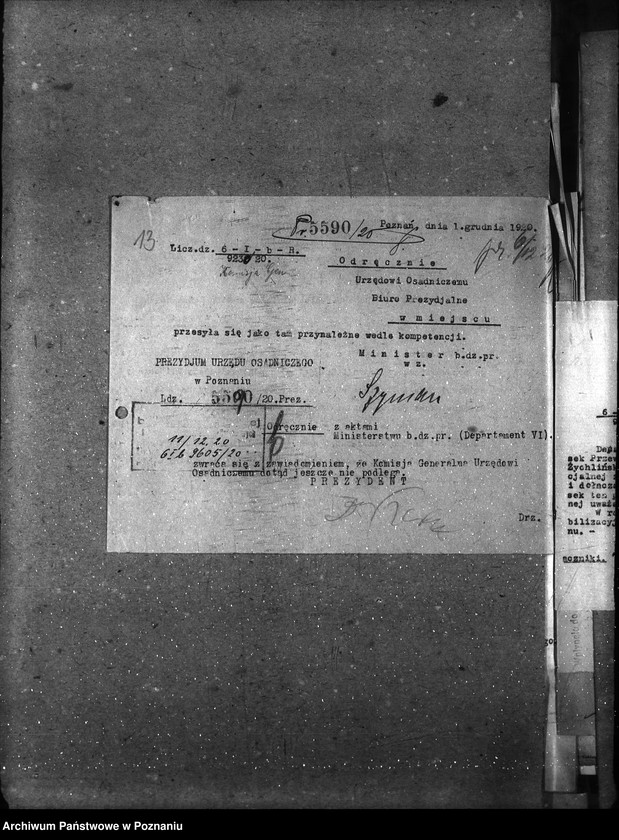 13
Pr. 5590/20 Poznań, dnia 1.grudnia 1920.
Licz.dz. 6 - I - b - R.
9230 20.
Odręcznie
Urzędowi Osadniczemu
Biuro Prezydjalne
w miejscu
przesyła się jako tam przynależne wedle kompetencji.
PREZYDJUM URZĘDU OSADNICZEGO
w Poznaniu
Ldz. 5590/20.Prez.
Minister b.dz.pr.
wz.
Szyman
11/12.20
6 I b 9605/20
Odręcznie z aktami
Ministerstwu b.dz.pr. (Departament VI).
zwraca się z zawiadomieniem, że Komisja Generalna Urzędowi
Osadniczemu dotąd jeszcze nie podlega.
PREZYDENT
Drz.
6 -
Depa
sek Przew
Żychlińsk
cjalnej z
i dołącza
sek ten p
nej uważa
W ra
bilizacyj
nu. -
łączniki.
Archiwum Państwowe w Poznaniu